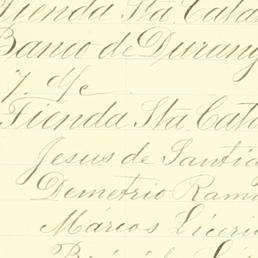 Tienda Sta Cata
Banco de Durang
7. d/c
Tienda Sta Cata
Jesus de Santia
Demetrio Ram
Márcos Liceri